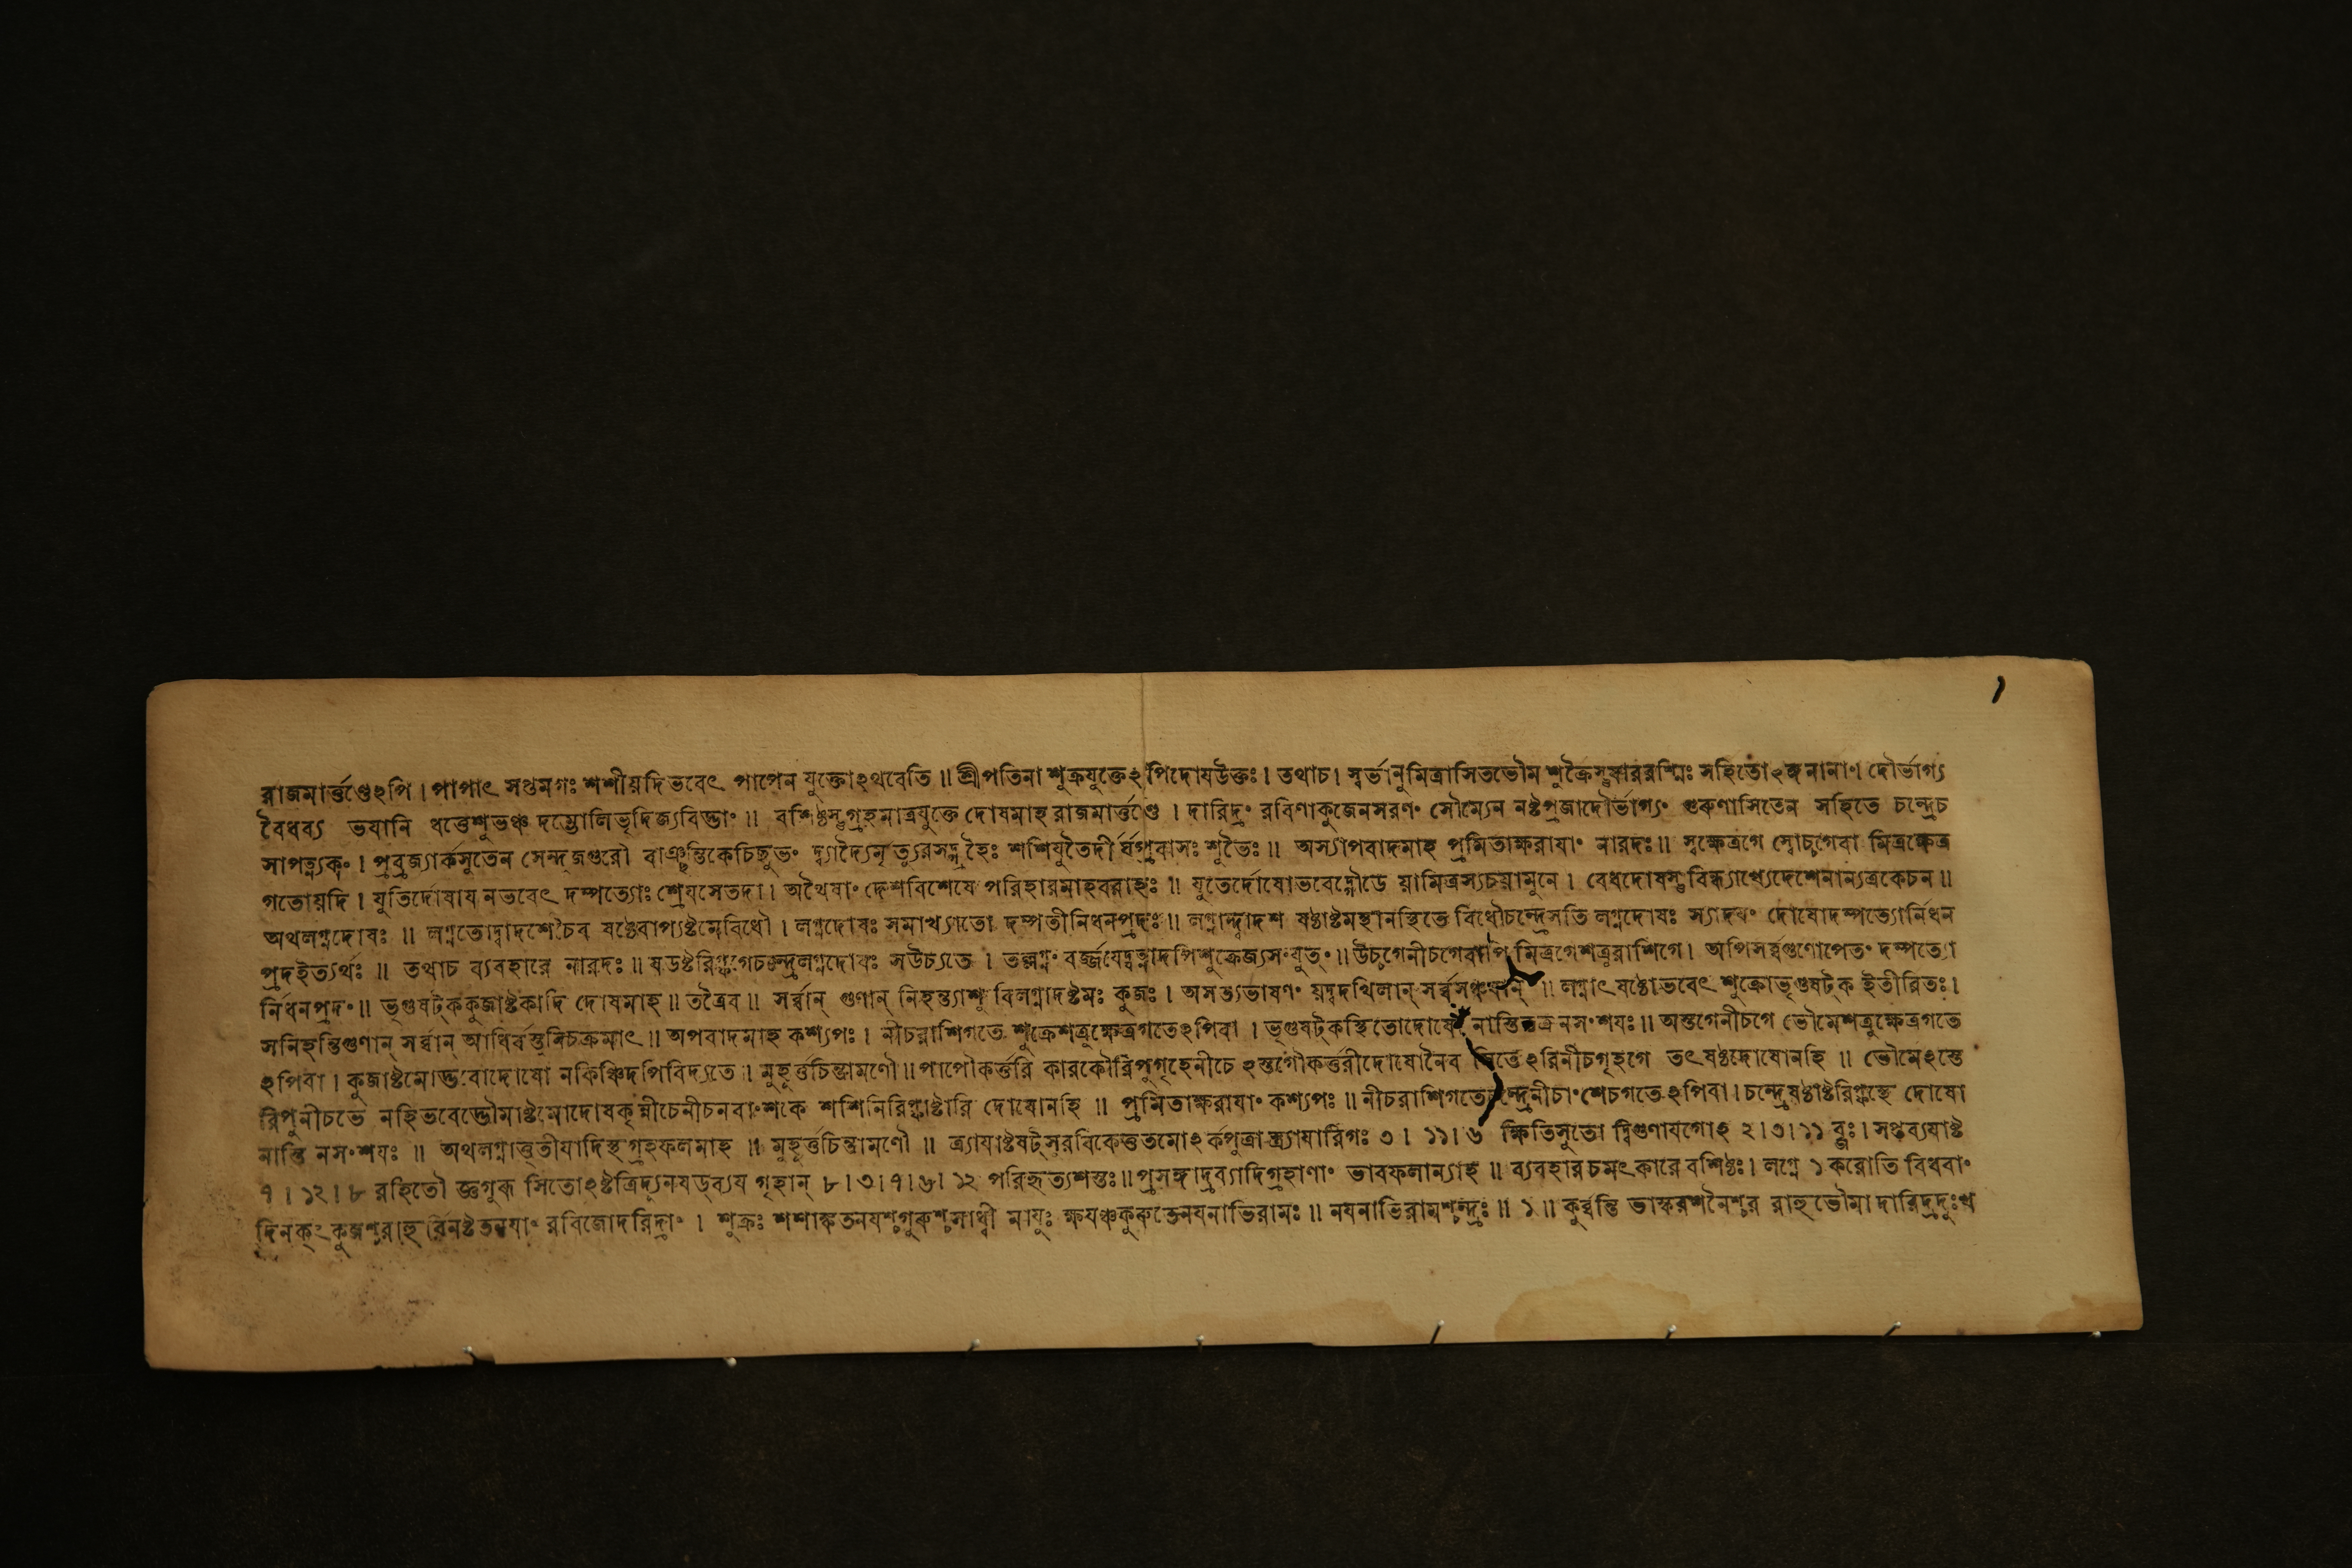 ১
রাজমার্ত্তণ্ডেঽপি । পাপাৎ সপ্তমগঃ শশীয়দি ভবেৎ পাপেন যুক্তোঽথবেতি ॥ শ্রীপতিনা শুক্রযুক্তেঽপিদোষউক্তঃ । তথাচ । স্বর্ভানুমিত্রাসিতভৌম শুক্রৈস্তুষাররশ্মিঃ সহিতোঽঙ্গনানাং দৌর্ভাগ্য
বৈধব্য ভযানি ধত্তেশুভঞ্চ দম্ভোলিভৃদিজ্যবিদ্ভাং ॥ বশিষ্ঠস্তুগ্রহমাত্রযুক্তে দোষমাহ রাজমার্ত্তণ্ডে । দারিদ্রং রবিণাকুজেনমরণং সৌম্যেন নষ্টপ্রজাদৌর্ভাগ্যং গুরুণাসিতেন সহিতে চন্দ্রেচ
সাপত্ন্যকং । প্রব্রজ্যার্কসুতেন সেন্দুজগুরৌ বাঞ্ছন্তিকেচিচ্ছুভং দ্ব্যাদ্যৈর্মৃত্যুরসদ্গ্রহৈঃ শশিযুতৈর্দীর্ঘপ্রবাসঃ শুভৈঃ ॥ অস্যাপবাদমাহ প্রমিতাক্ষরাযাং নারদঃ ॥ স্বক্ষেত্রগে স্বোচ্চগেবা মিত্রক্ষেত্র
গতোয়দি । যুতির্দোষায নভবেৎ দম্পত্যোঃ শ্রেযসেতদা । অথৈষাং দেশবিশেষে পরিহারমাহবরাহঃ ॥ যুতের্দোষোভবেদ্গৌডে য়ামিত্রস্যচয়ামুনে । বেধদোষস্তু বিন্ধ্যাখ্যেদেশেনান্যত্রকেচন ॥
অথলগ্নদোষঃ ॥ লগ্নতোদ্বাদশেচৈব ষষ্ঠেবাপ্যষ্টমেবিধৌ । লগ্নদোষঃ সমাখ্যাতো দম্পতীনিধনপ্রদঃ ॥ লগ্নাদ্দ্বাদশ ষষ্ঠাষ্টমস্থানস্থিতে বিধৌচন্দ্রেসতি লগ্নদোষঃ স্যাদযং দোষোদম্পত্যোর্নিধন
প্রদইত্যর্থঃ ॥ তথাচ ব্যবহারে নারদঃ ॥ ষডষ্টরিষ্ফগেচন্দ্রেলগ্নদোষঃ সউচ্যতে । তল্লগ্নং বর্জ্জযেদ্যত্নাদপিশুক্রেজ্যসংযুতং ॥ উচ্চগেনীচগেবাপি মিত্রগেশত্রুরাশিগে । অপিসর্ব্বগুণোপেতং দম্পত্যো
র্নিধনপ্রদং ॥ ভৃগুষট্ককুজাষ্টকাদি দোষমাহ ॥ তত্রৈব ॥ সর্ব্বান্ গুণান্ নিহন্ত্যাশু বিলগ্নাদষ্টমঃ কুজঃ । অসত্যভাষণং য়দ্বদখিলান্ ॥ লগ্নাৎষষ্ঠোভবেৎ শুক্রোভৃগুষট্ক ইতীরিতঃ ।
সনিহন্তিগুণান্ সর্ব্বান্ আধির্বস্তুনিচক্রমাৎ ॥ অপবাদমাহ কশ্যপঃ । নীচরাশিগতে শুক্রেশত্রুক্ষেত্রগতেঽপিবা । ভৃগুষট্কস্থিতোদোষো নাস্তিতত্রনসংশযঃ ॥ অস্তগেনীচগে ভৌমেশত্রুক্ষেত্রগতে
ঽপিবা । কুজাষ্টমোদ্ভবোদোষো নকিঞ্চিদপিবিদ্যতে । মুহূর্ত্তচিন্তামণৌ ॥ পাপৌকর্ত্তরি কারকৌরিপুগৃহেনীচেঽস্তগৌকর্ত্তরীদোষোনৈব সিতেঽরিনীচগৃহগে তৎষষ্ঠদোষোনহি ॥ ভৌমেঽস্তে
রিপুনীচভে নহিভবেদ্ভৌমাষ্টমোদোষকৃন্নীচেনীচনবাংশকে শশিনিরিষ্ফাষ্টারি দোষোনহি ॥ প্রমিতাক্ষরাযাং কশ্যপঃ ॥ নীচরাশিগতেচন্দ্রেনীচাংশেচগতেঽপিবা । চন্দ্রেষষ্ঠাষ্টরিষ্ফস্থে দোষো
নাস্তি নসংশযঃ ॥ অথলগ্নাত্তৃতীযাদিস্থ গ্রহফলমাহ ॥ মুহূর্ত্তচিন্তামণৌ ॥ ত্র্যাযাষ্টষট্সুরবিকেত্ততমোঽর্কপুত্রাস্ত্র্যাযারিগঃ ৩ । ১১ । ৬ ক্ষিতিসুতো দ্বিগুণাযগোঽ ২ । ৩ । ১১ ব্জঃ । সপ্তব্যযাষ্ট
৭ । ১২ । ৮ রহিতৌ জ্ঞগুরূ সিতোঽষ্টত্রিদ্যুনষড্ব্যয গৃহান্ ৮ । ৩ । ৭ । ৬ । ১২ পরিহৃত্যশস্তঃ ॥ প্রসঙ্গাদ্রব্যাদিগ্রহাণাং ভাবফলান্যাহ ॥ ব্যবহারচমৎকারে বশিষ্ঠঃ । লগ্নে ১ করোতি বিধবাং
দিনকৃৎকুজশ্চরাহুর্বিনষ্টতনযাং রবিজোদরিদ্রাং । শুক্রঃ শশাঙ্কতনযশ্চগুরুশ্চসাধ্বী মাযুঃ ক্ষযঞ্চকুরুতেনযনাভিরামঃ ॥ নযনাভিরামশ্চন্দ্রঃ ॥ ১ ॥ কুর্ব্বন্তি ভাস্করশনৈশ্চর রাহুভৌমা দারিদ্রদুঃখ